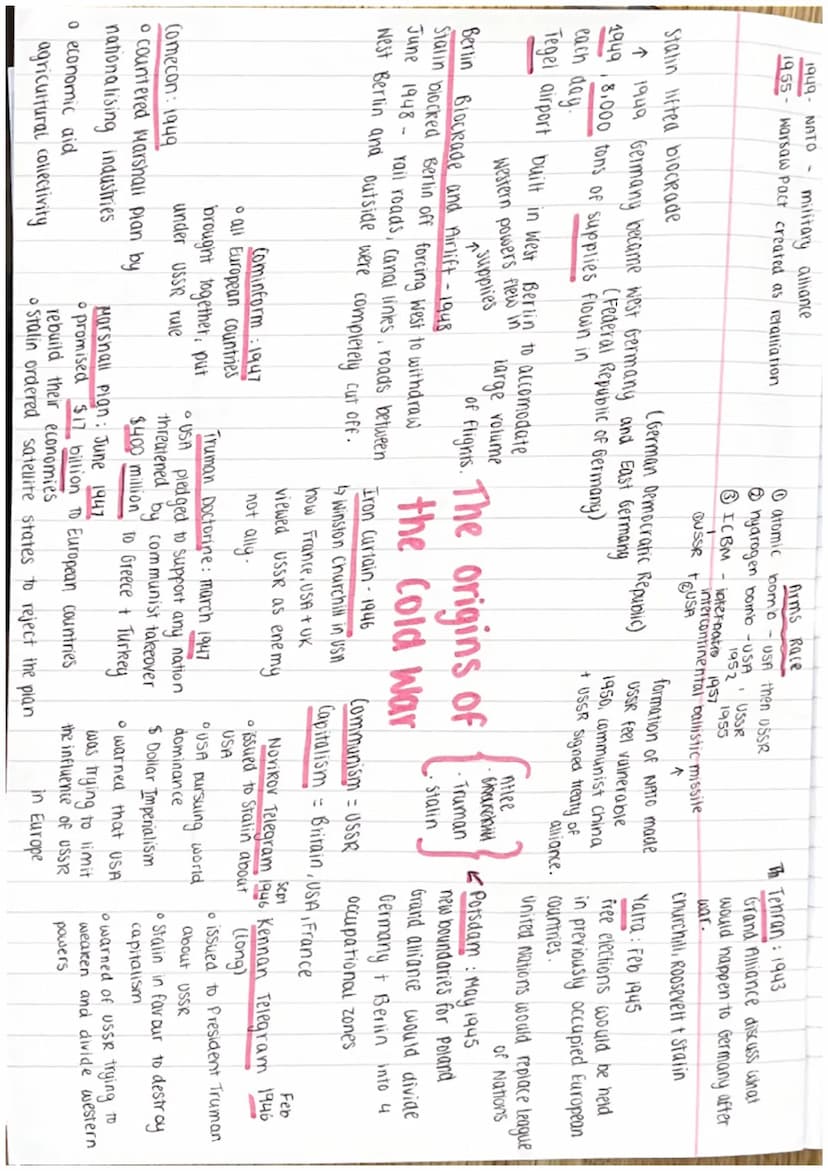 1949 - NATO - military alliance
1955 - Warsaw Pact created as retalliation
Arms Race
① atomic bomb - USA then USSR
② hydrogen bomb - USA, USSR
1952 1955
③ ICBM - 1957
intercontinental ballistic missile
①USSR + ②USA
Th Tehran : 1943
Grand Alliance discuss what
would happen to Germany after
war.
Churchill, Roosevelt + Stalin
Yalta : Feb 1945
free elections would be held
in previously occupied European
countries.
United Nations would replace league
of Nations
Potsdam : May 1945
new boundaries for Poland
Grand alliance would divide
Germany + Berlin into 4
occupational zones
formation of NATO made
USSR feel vulnerable
1950, communist China
+ USSR signed treaty of
alliance.
Stalin lifted blockade
↑ 1949 Germany became West Germany and East Germany
(German Democratic Republic)
(Federal Republic of Germany)
1949, 8,000 tons of supplies flown in
each day.
Tegel airport built in West Berlin to accomodate
large volume
of flights.
western powers flew in
↑ supplies
Berlin Blockade and Airlift - 1948
Stalin blocked Berlin off forcing West to withdraw
June 1948 - rail roads, canal links, roads between
West Berlin and outside were completely cut off.
The origins of
the Cold War
Attlee
· Churchill
· Truman
· Stalin
Iron Curtain - 1946
↳ Winston Churchill in USA
how France, USA + UK
viewed USSR as enemy
not ally.
Communism = USSR
Capitalism = Britain, USA, France
Cominform : 1947
o all European countries
brought together, put
under USSR rule
Comecon : 1949
o countered Marshall Plan by
nationalising industries
o economic aid
agricultural collectivity
Truman Doctorine : march 1947
o USA pledged to support any nation
threatened by communist takeover
$400 million to Greece + Turkey
Marshall Plan : June 1947
o promised $17 billion to European countries
rebuild their economies
o Stalin ordered satellite states to reject the plan
Novikov Telegram Sept 1946
o issued to Stalin about
USA
o USA pursuing world
dominance
$ Dollar Imperialism
o warned that USA
was trying to limit
the influence of USSR
in Europe
Kennan Telegram Feb 1946
(long)
o issued to President Truman
about USSR
o Stalin in favour to destroy
capitalism
o warned of USSR trying to
weaken and divide western
powers